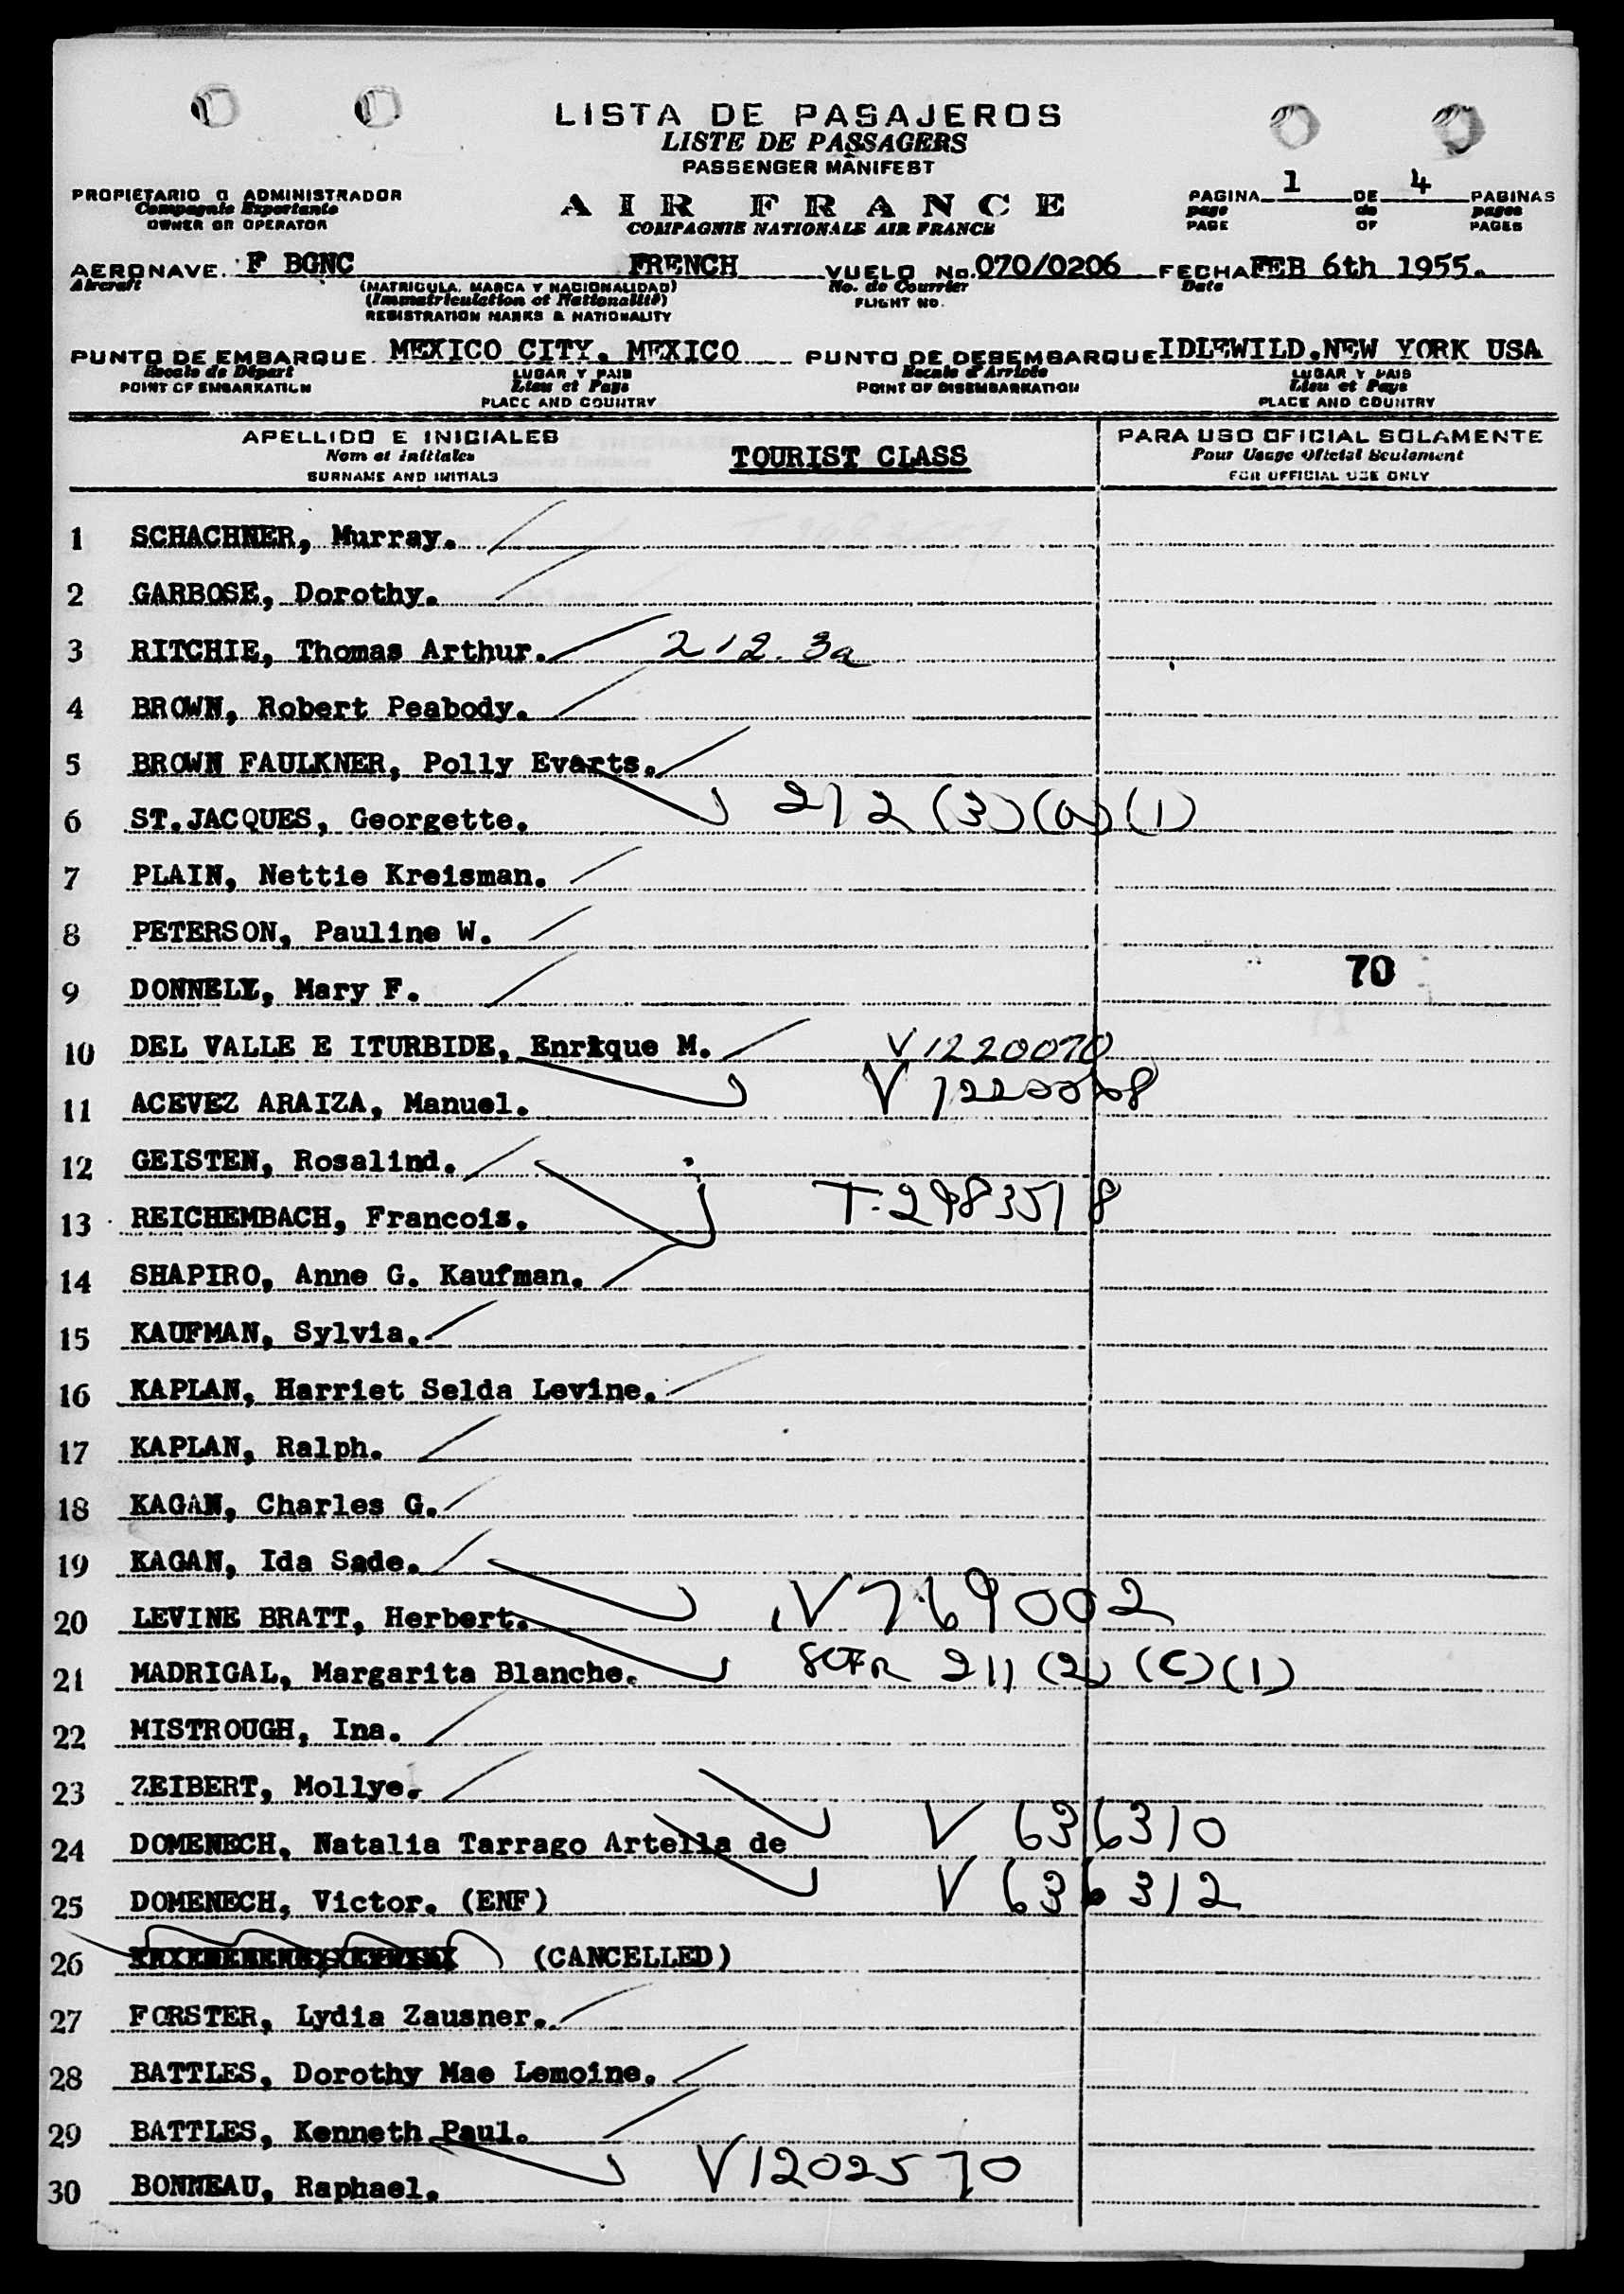 LISTA DE PASAJEROS
LISTE DE PASSAGERS
PASSENGER MANIFEST
PROPIETARIO O ADMINISTRADOR
Compagnie Exportante
OWNER OR OPERATOR
AIR FRANCE
COMPAGNIE NATIONALE AIR FRANCE
PAGINA 1 DE 4 PAGINAS
page de pages
PAGE OF PAGES
AERONAVE F BGNC FRENCH VUELO No. 070/0206 FECHA FEB 6th 1955.
Aircraft (MATRICULA, MARCA Y NACIONALIDAD) No. de Courrier Date
(Immatriculation et Nationalité) FLIGHT NO.
REGISTRATION MARKS & NATIONALITY
PUNTO DE EMBARQUE MEXICO CITY. MEXICO PUNTO DE DESEMBARQUE IDLEWILD.NEW YORK USA
Escale de Départ LUGAR Y PAIS Escale d'Arrivée LUGAR Y PAIS
POINT OF EMBARKATION Lieu et Pays POINT OF DISEMBARKATION Lieu et Pays
PLACE AND COUNTRY PLACE AND COUNTRY
APELLIDO E INICIALES
Nom et initiales
SURNAME AND INITIALS
TOURIST CLASS
PARA USO OFICIAL SOLAMENTE
Pour Usage Officiel Seulement
FOR OFFICIAL USE ONLY
1 SCHACHNER, Murray.
2 GARBOSE, Dorothy.
3 RITCHIE, Thomas Arthur. 212.3a
4 BROWN, Robert Peabody.
5 BROWN FAULKNER, Polly Evarts.
6 ST.JACQUES, Georgette. 212(3)(a)(1)
7 PLAIN, Nettie Kreisman.
8 PETERSON, Pauline W.
9 DONNELY, Mary F. 70
10 DEL VALLE E ITURBIDE, Enrique M. V1220070
11 ACEVEZ ARAIZA, Manuel. V 1220068
12 GEISTEN, Rosalind.
13 REICHEMBACH, Francois. T-2983518
14 SHAPIRO, Anne G. Kaufman.
15 KAUFMAN, Sylvia.
16 KAPLAN, Harriet Selda Levine.
17 KAPLAN, Ralph.
18 KAGAN, Charles G.
19 KAGAN, Ida Sade.
20 LEVINE BRATT, Herbert. V769002
21 MADRIGAL, Margarita Blanche. 8CFR 211(2)(C)(1)
22 MISTROUGH, Ina.
23 ZEIBERT, Mollye.
24 DOMENECH, Natalia Tarrago Artella de V 636310
25 DOMENECH, Victor. (ENF) V 636312
26 (CANCELLED)
27 FORSTER, Lydia Zausner.
28 BATTLES, Dorothy Mae Lemoine.
29 BATTLES, Kenneth Paul.
30 BONNEAU, Raphael. V1202570